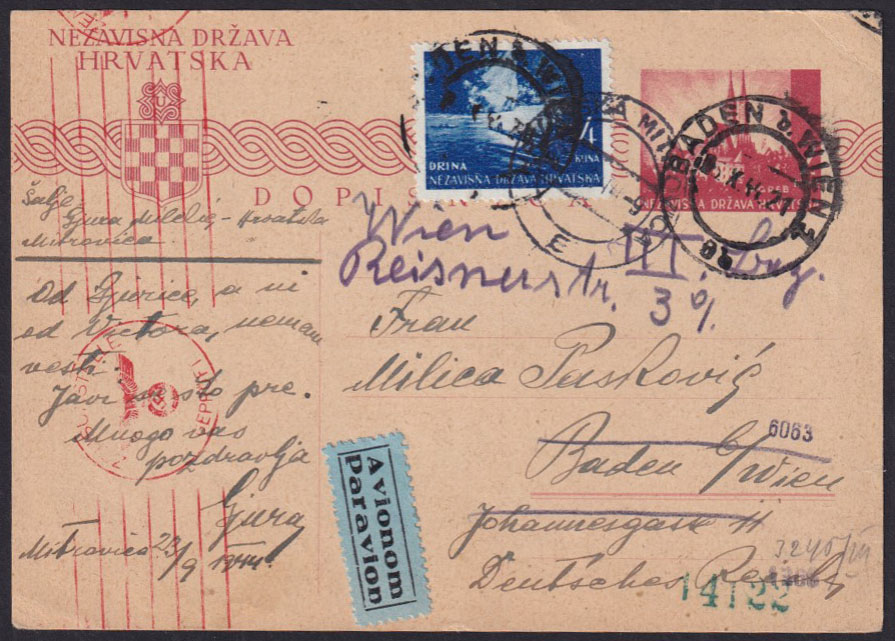 NEZAVISNA DRŽAVA
HRVATSKA
U
DOPISNICA
DRINA
4
KUNA
NEZAVISNA DRŽAVA HRVATSKA
ZAGREB
NEZAVISNA DRŽAVA HRVATSKA
BADEN b. WIEN
BADEN b. WIEN 2
Šalje
Gjura Miletić - Hrvatska
Mitrovica
Od Gjurice, a ni
od Victora, nemam
vesti.
Javi se što pre.
Mnogo vas
pozdravlja
Gjura
Mitrovica 23/9 1944.
Wien III.
Reisnerstr. 3
Frau
Milica Pasković
6063
Baden b/Wien
Johannesgasse 4
Deutsches Reich
Avionom
Par avion
14122